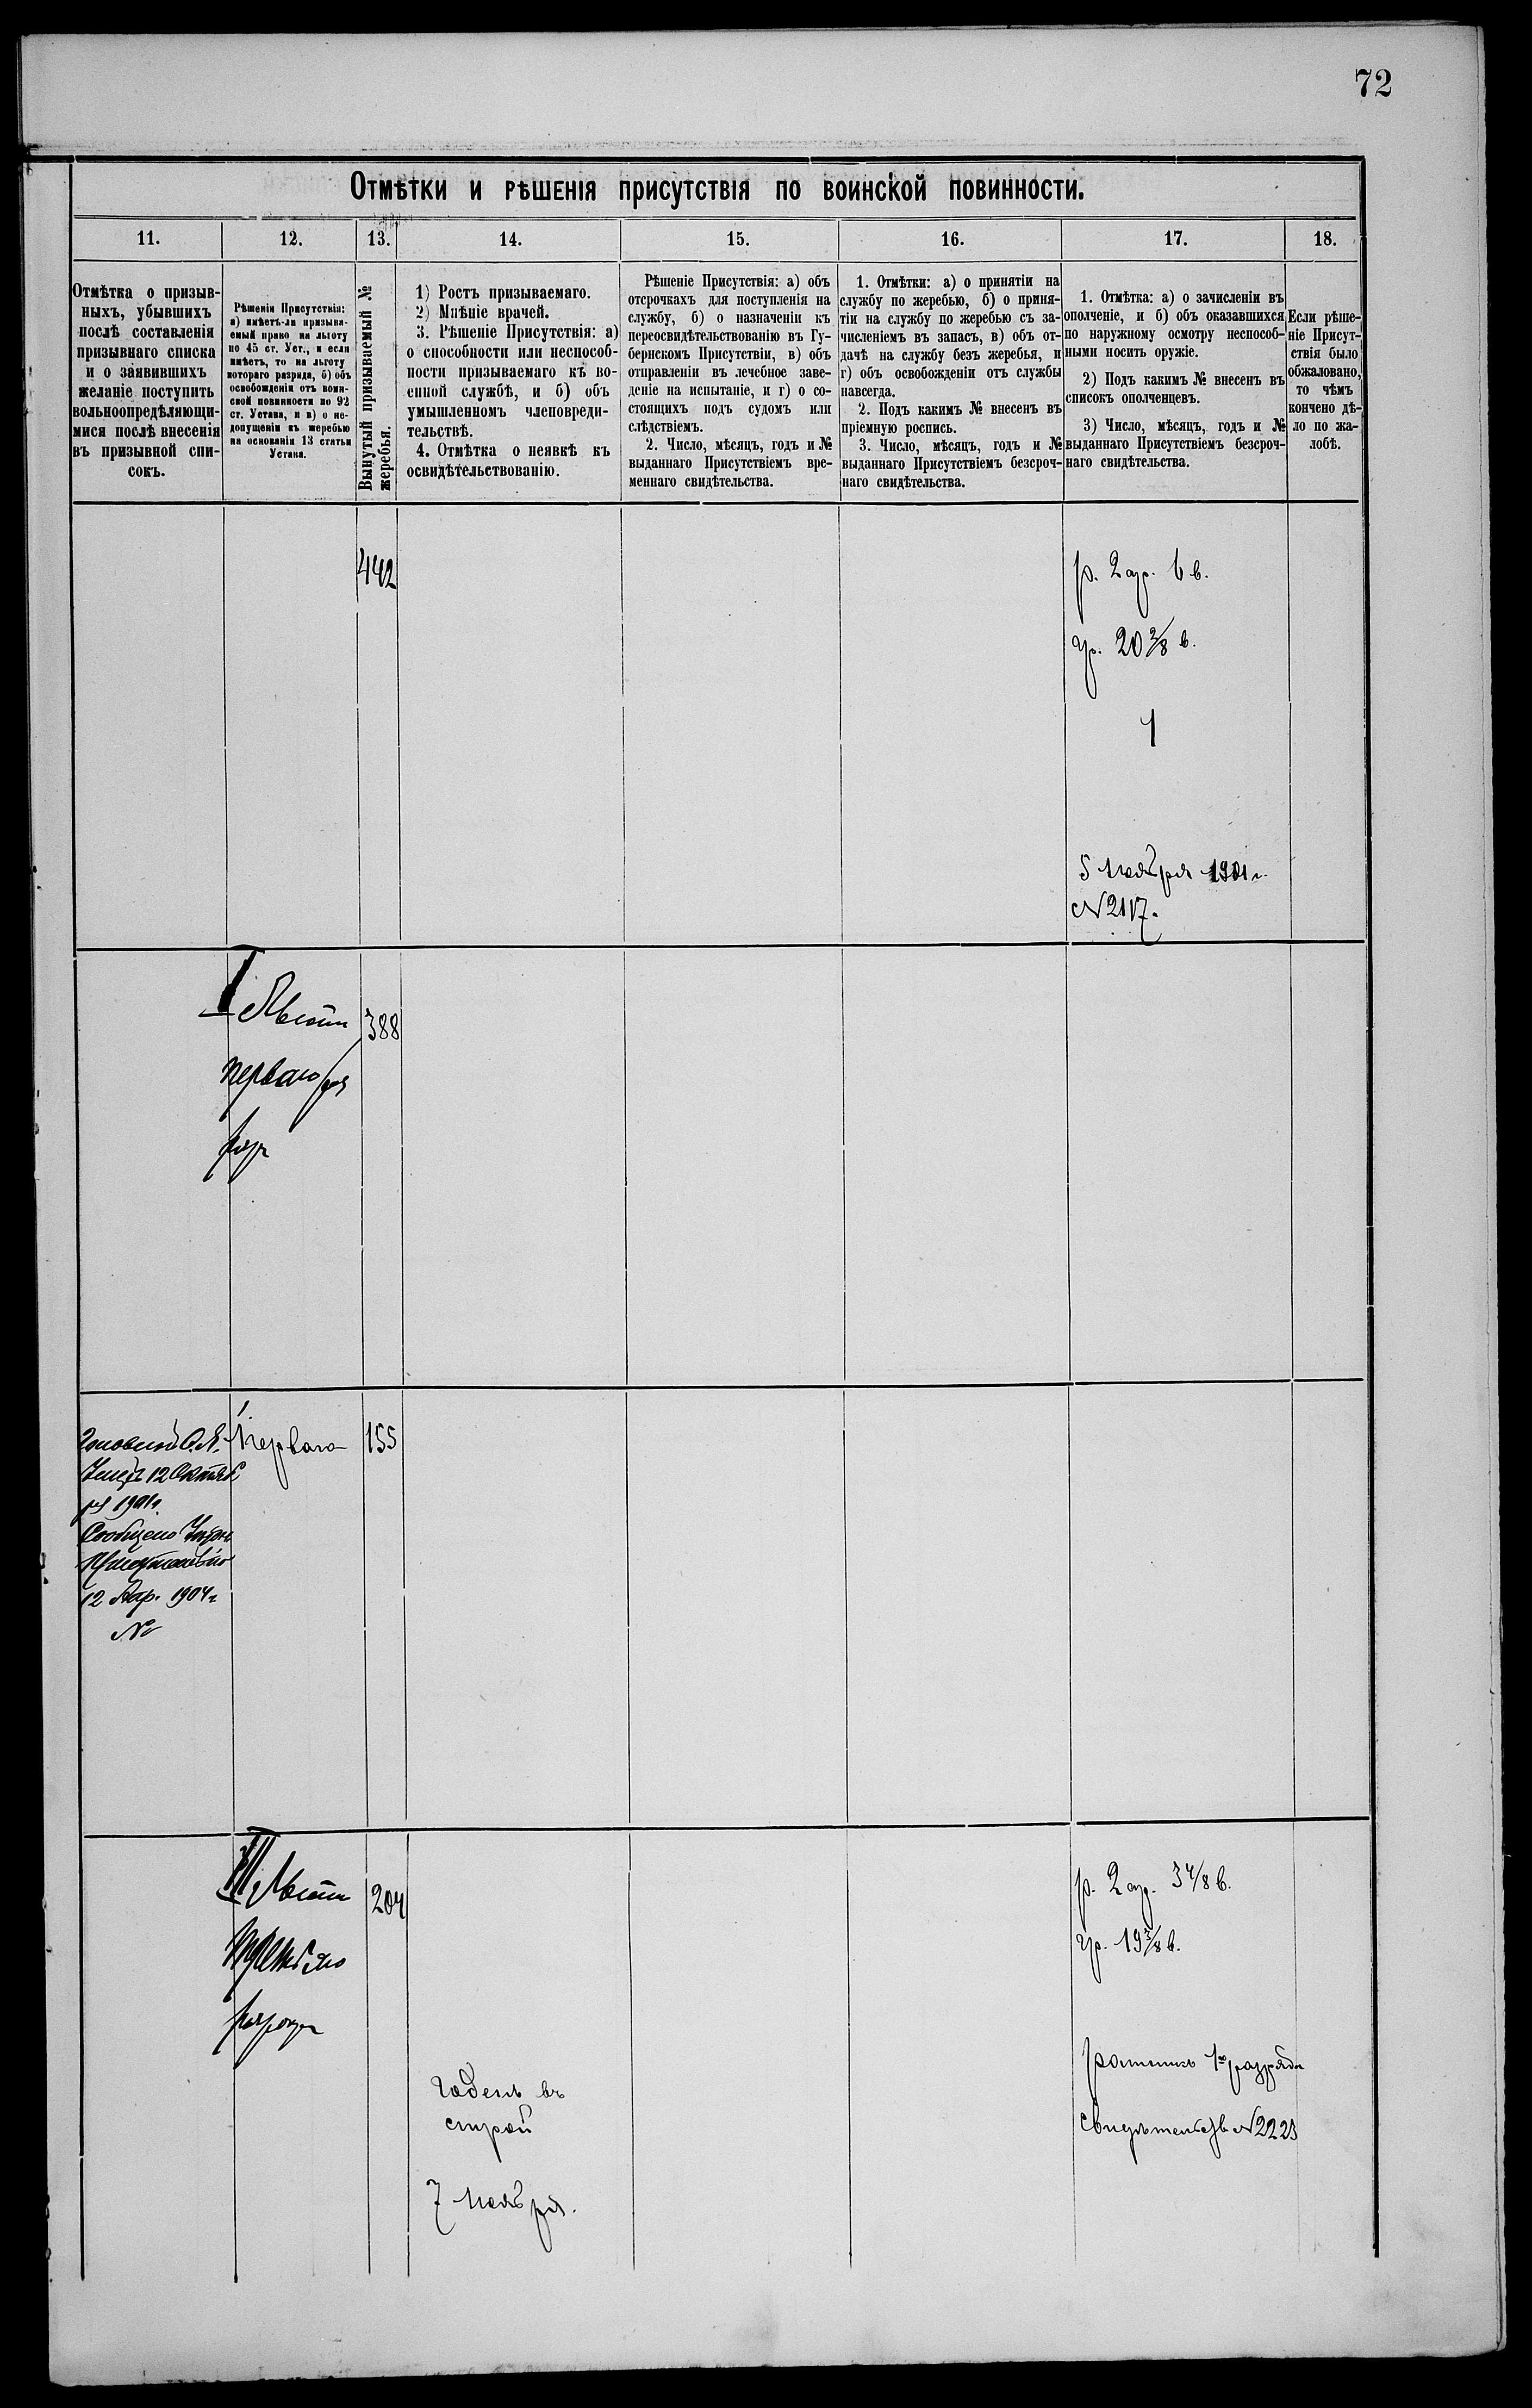 72
Отмѣтки и рѣшенія присутствія по воинской повинности.
11. 12. 13. 14. 15. 16. 17. 18.
Отмѣтка о призыв-
ныхъ, убывшихъ
послѣ составленія
призывнаго списка
и о заявившихъ
желаніе поступить
вольноопредѣляющи-
мися послѣ внесенія
въ призывной спи-
сокъ.
Рѣшенія Присутствія:
а) имѣетъ-ли призыва-
емый право на льготу
по 45 ст. Уст., и если
имѣетъ, то на льготу
котораго разряда, б) объ
освобожденіи отъ воин-
ской повинности по 92
ст. Устава, и в) о не-
допущеніи къ жеребью
на основаніи 13 статьи
Устава.
Вынутый призываемый №
жеребья.
1) Ростъ призываемаго.
2) Мнѣніе врачей.
3. Рѣшеніе Присутствія: а)
о способности или неспособ-
ности призываемаго къ во-
енной службѣ, и б) объ
умышленномъ членовреди-
тельствѣ.
4. Отмѣтка о неявкѣ къ
освидѣтельствованію.
Рѣшеніе Присутствія: а) объ
отсрочкахъ для поступленія на
службу, б) о назначеніи къ
переосвидѣтельствованію въ Гу-
бернскомъ Присутствіи, в) объ
отправленіи въ лечебное заве-
деніе на испытаніе, и г) о со-
стоящихъ подъ судомъ или
слѣдствіемъ.
2. Число, мѣсяцъ, годъ и №
выданнаго Присутствіемъ вре-
меннаго свидѣтельства.
1. Отмѣтки: а) о принятіи на
службу по жеребью, б) о приня-
тіи на службу по жеребью съ за-
численіемъ въ запасъ, в) объ от-
дачѣ на службу безъ жеребья, и
г) объ освобожденіи отъ службы
навсегда.
2. Подъ какимъ № внесенъ въ
пріемную роспись.
3. Число, мѣсяцъ, годъ и №
выданнаго Присутствіемъ безсроч-
наго свидѣтельства.
1. Отмѣтка: а) о зачисленіи въ
ополченіе, и б) объ оказавшихся
по наружному осмотру неспособ-
ными носить оружіе.
2) Подъ какимъ № внесенъ въ
списокъ ополченцевъ.
3) Число, мѣсяцъ, годъ и №
выданнаго Присутствіемъ безсроч-
наго свидѣтельства.
Если рѣше-
ніе Присут-
ствія было
обжаловано,
то чѣмъ
кончено дѣ-
ло по жа-
лобѣ.
442
р. 2 ар. 6 в.
гр. 20 2/8 в.
1
5 ноября 1901 г.
№ 2117.
I Льготы
перваго
388
12 Октяб
ря 1901 г.
Сообщено
12 1904 г
№
Перваго
155
III Льготы
разряда
204
годенъ въ
строй
7 ноября.
р. 2 ар. 3 4/8 в.
гр. 19 3/8 в.
ратникъ 1го разряда
свидѣтельств № 2223